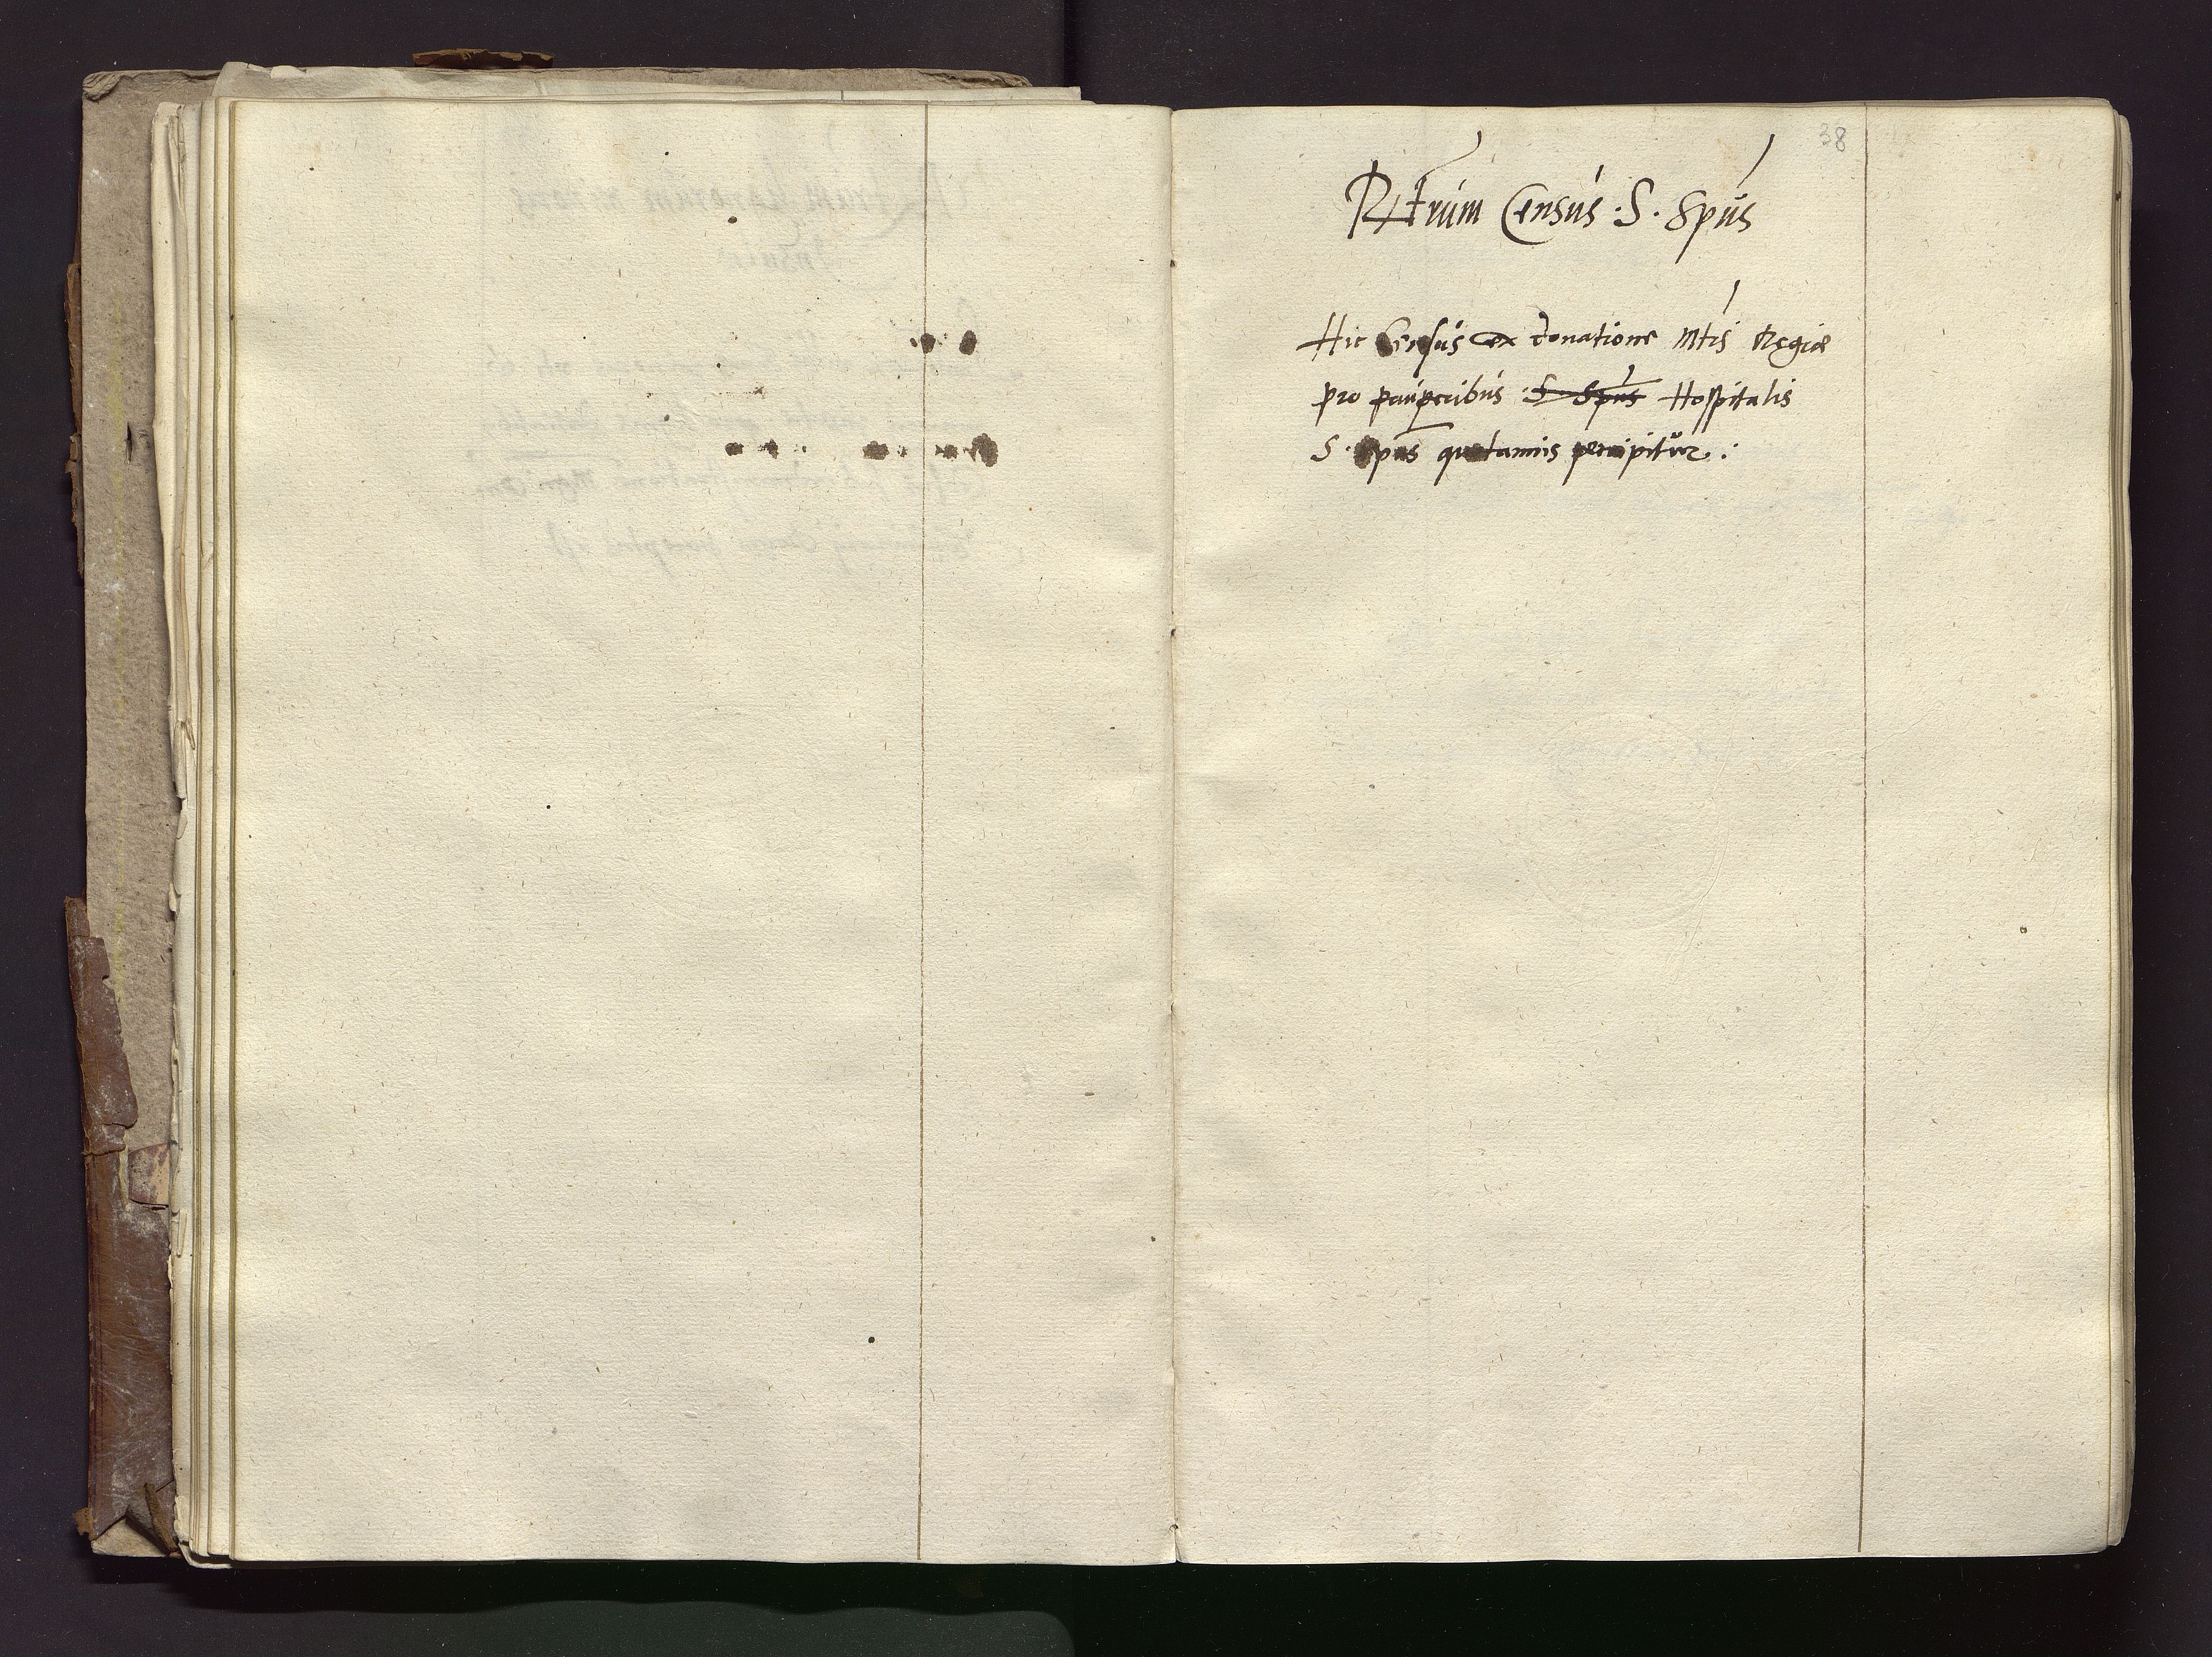 38
Rtrum Census S. Spus
Hic Census ex donatione Mtis Regiæ
pro pauperibus S Spus Hospitalis
S. Spus quotannis percipitur :